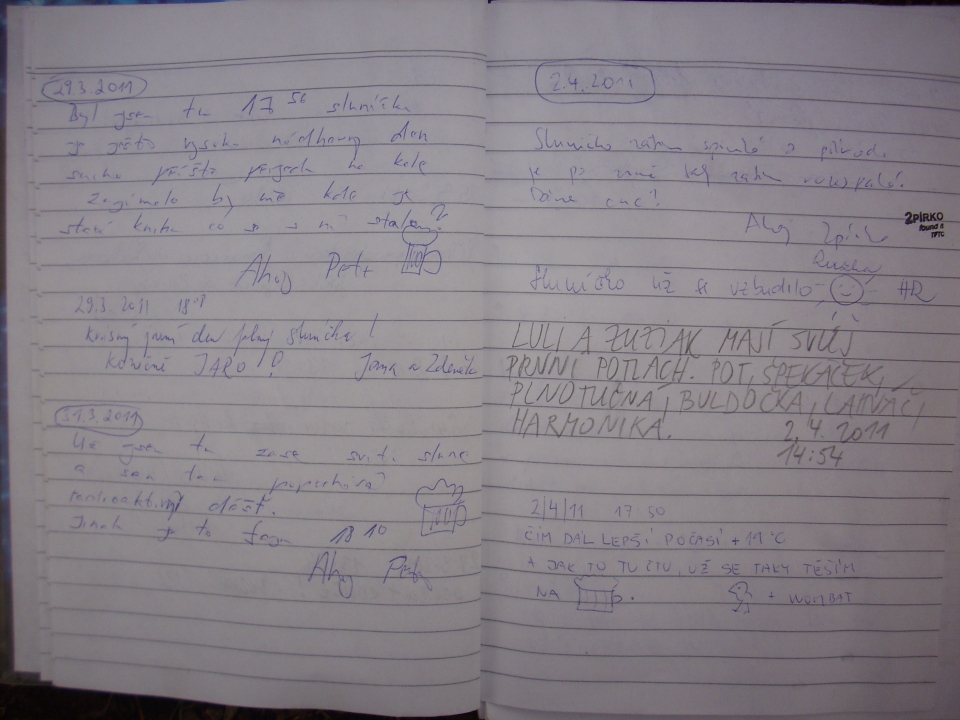 29.3.2011
Byl jsem tu 17 56 sluníčko
je ještě vysoko nádherný den
příště přijedu na kole
Zajímalo by mě kde je
stará kniha co se s ní stalo?
Ahoj Petr
29.3.2011 18
Krásný jarní den plný sluníčka!
Konečně JARO!? Jana a Zdeněk
31.3.2011
Už jsem tu zase svítí slunce
a sem tam
radioaktivní déšť.
Jinak je to fajn 18 10
Ahoj Petr
2.4.2011
Sluníčko zatím
je po
Dáme
Ahoj 2pírko
2PÍRKO
found it
TFTC
Sluníčko už se vzbudilo
LULI A ZUZIAK MAJÍ SVŮJ
PRVNÍ POTLACH. POT, ŠPEKÁČEK,
PLNOTUČNÁ, BULDOČKA,
HARMONIKA. 2.4.2011
14:54
2/4/11 17 50
ČÍM DÁL LEPŠÍ POČASÍ +19°C
A JAK TO TU ČTU, UŽ SE TAKY TĚŠÍM
NA + WOMBAT